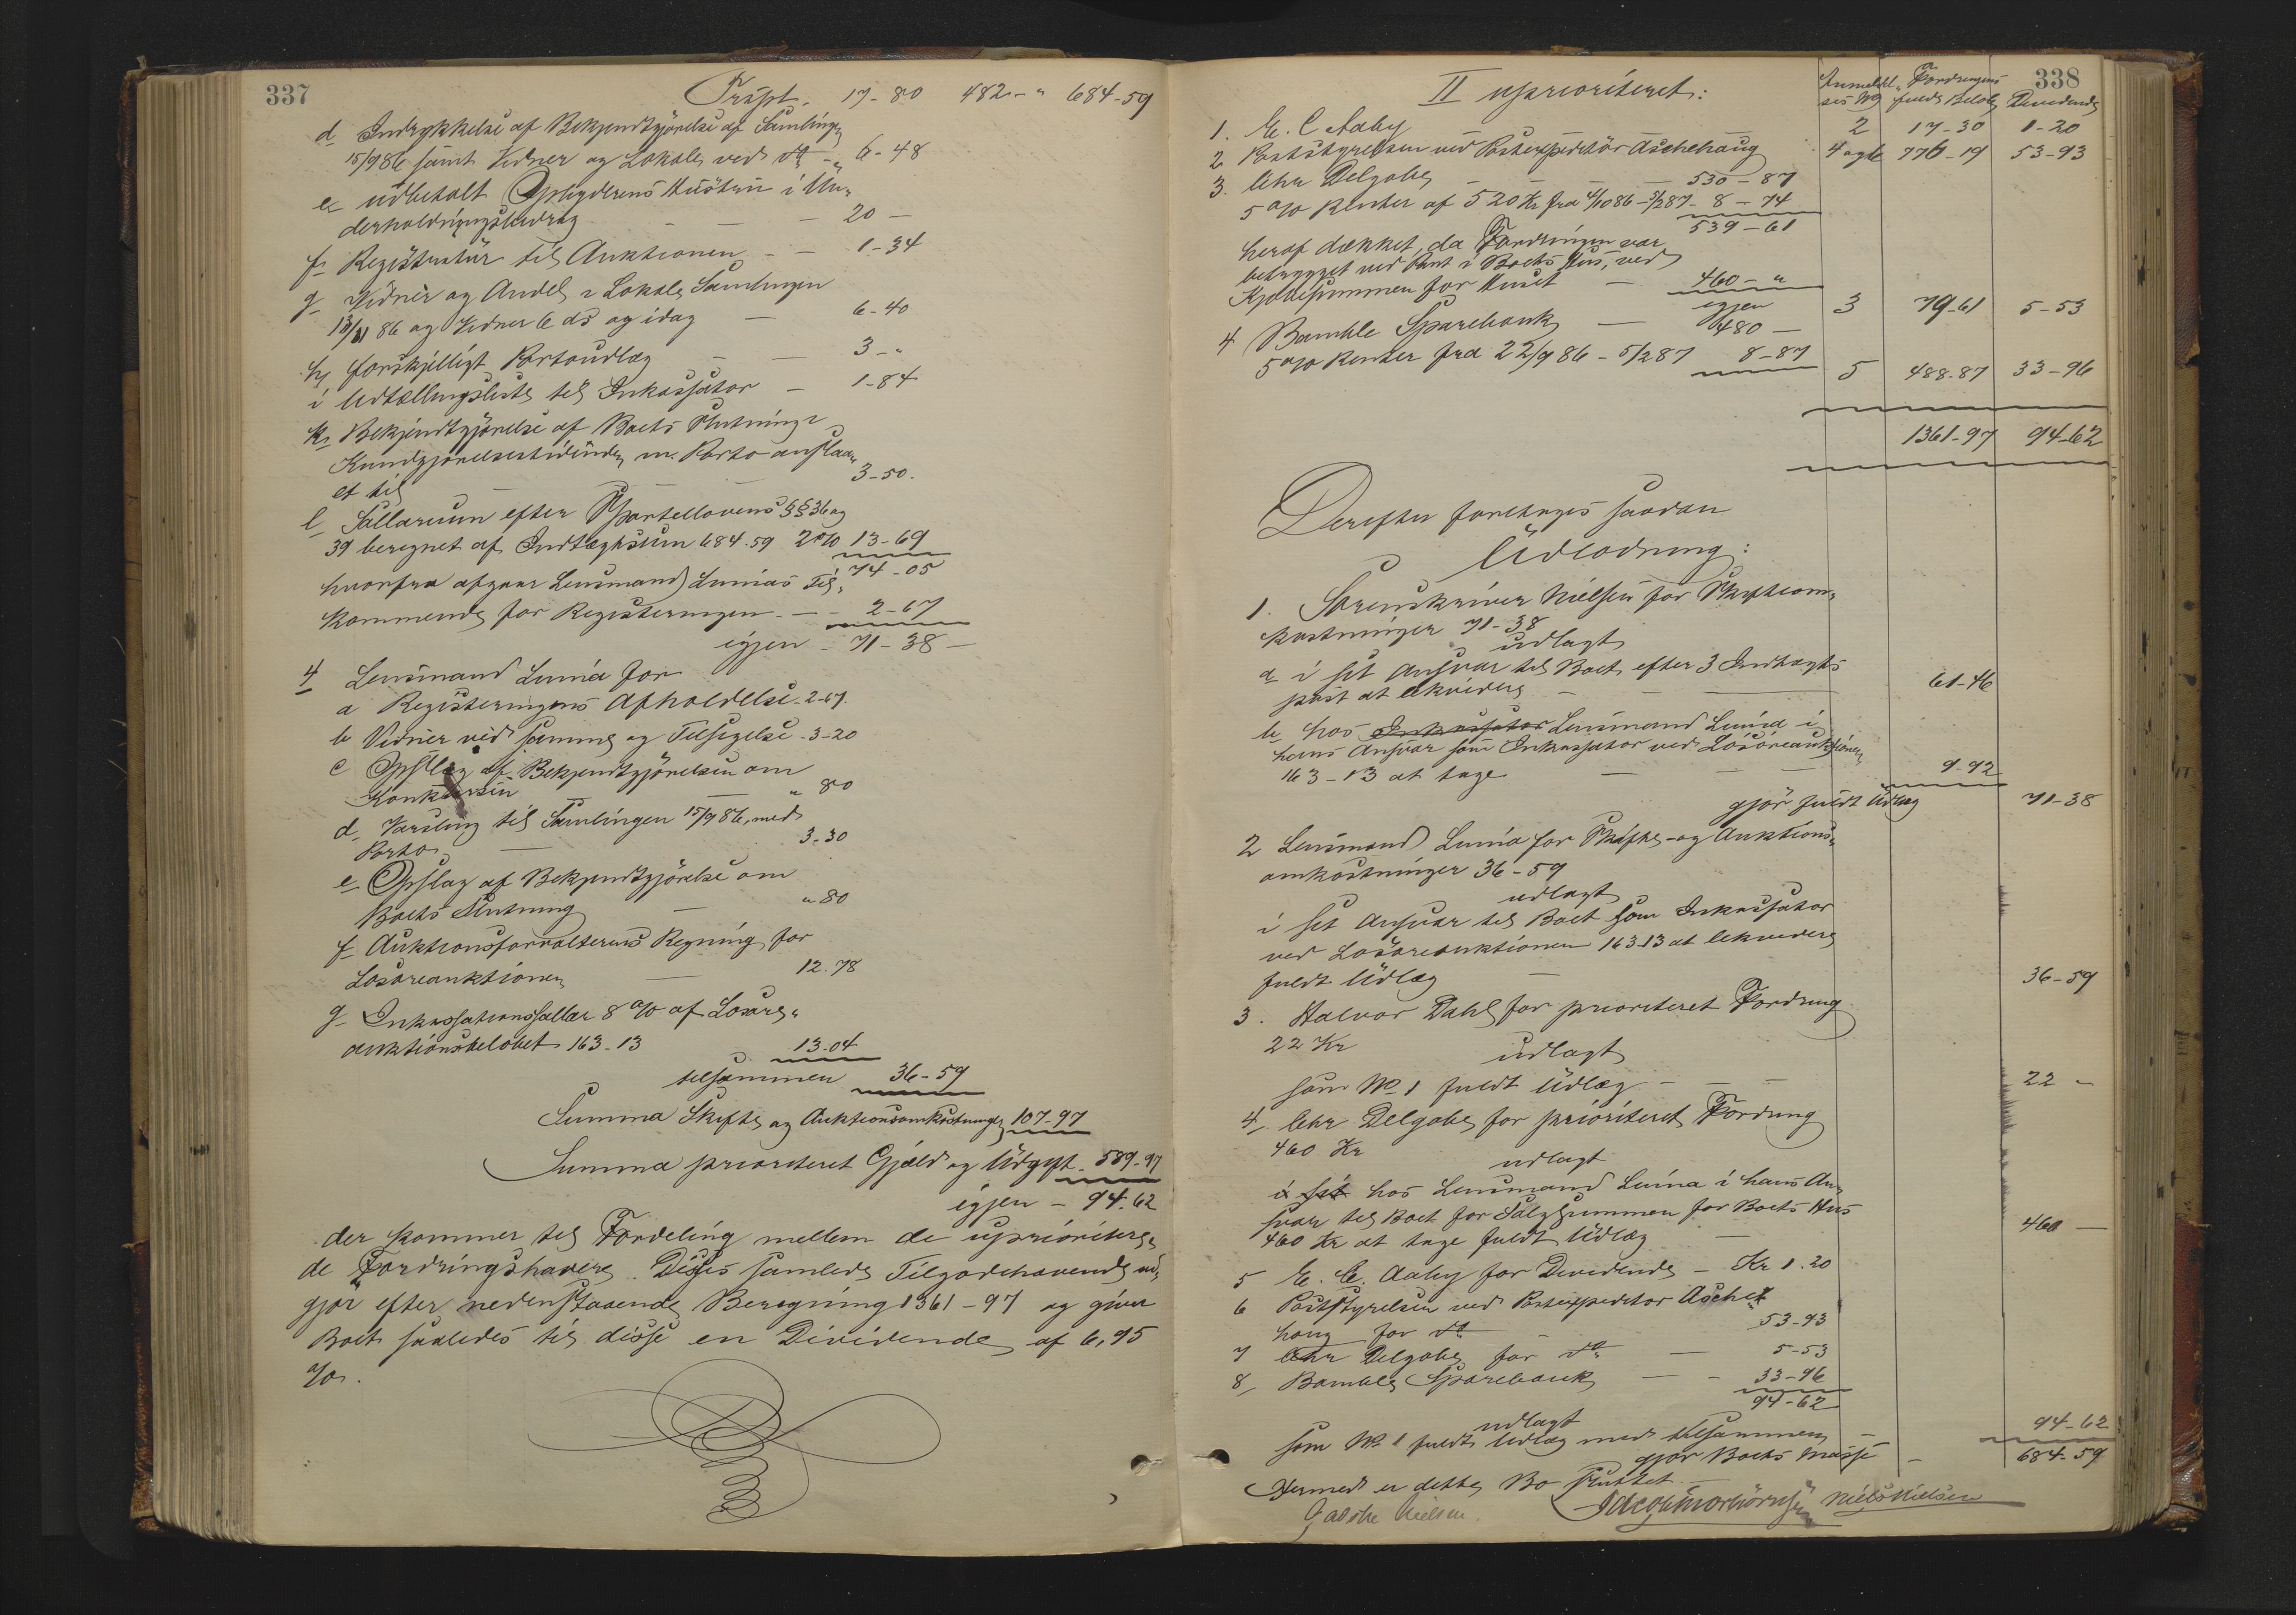 337
Trspt. 17-80 482-" 684-59
d Indrykkelse af Bekjendtgjörelse af Samlingen
15/9 86 samt Vidner og Lokale ved do - " 6-48
e udbetalt Opbyderens Hustru i Un-
derholdningsbidrag - - - 20 -
f Registratur til Auktionen - - 1-34
g Vidner og Andel i Lokale Samlingen
13/11 86 og Vidner 6 ds og idag - 6-40
h forskjelligt Portoudlæg - - 3-"
i Udtællingsliste til Inkassator - 1-84
k Bekjendtgjörelse af Boets Slutning i
Kundgjörelsestidende m. Porto anslaa-
et til - 3-50.
l Sallarium efter Sportellovens §§ 36 og
39 beregnet af Indtægtssum 684.59 2% 13-69
74-05
hvorfra afgaar Lensmand Lunias Til-
kommende for Registeringen - - 2-67
igjen - 71-38 -
4 Lensmand Lunia for
a Registeringens Afholdelse - 2-67.
b Vidner ved samme og Tilsigelse - 3-20
c Opslag af Bekjendtgjörelsen om
Konkursen - " 80
d Varsling til Samlingen 15/9 86, med
Porto - 3-30
e Opslag af Bekjendtgjörelse om
Boets Slutning - " 80
f Auktionsforvalterens Regning for
Lösöreauktionen - 12.78
g Inkassationssallar 8% af Lösöre-
auktionsbelöbet 163-13 13-04
tilsammen 36-59
Summa Skifte og Auktionsomkostninger 107-97
Summa prioriteret Gjæld og Udgift - 589-97
igjen - 94-62
der kommer til Fordeling mellem de uprioritere-
de Fordringshavere. Disses samlede Tilgodehavende ud-
gjör efter nedenstaaende Beregning 1361-97 og giver
Boet saaledes til disse en Dividende af 6,95
%.
338
II uprioriteret:
Anmeldel- ses No Fordringens fulde Belöb Dividende
1. E. C Aaby 2 17-30 1-20
2 Poststyrelsen ved Postexpeditör Aschehaug 4 og 6 776-19 53-93
3. Chr Delgobe - - - 530-87
5% Renter af 520 Kr fra 4/10 86 - 5/2 87 - 8-74
539-61
heraf dækket, da Fordringen var
betrygget ved Pant i Boets Hus, ved
Kjöbesummen for Huset - 460-"
igjen 3 79-61 5-53
4 Bamble Sparebank - 480 -
5% Renter fra 22/9 86 - 5/2 87 8-87
5 488-87 33-96
1361-97 94-62
Derefter foretoges saadan
Udlodning:
1. Sorenskriver Nielsen for Skifteom-
kostninger 71-38
udlagt
a i sit Ansvar til Boet efter 3 Indtægts
post at likvidere - - 61-46
b hos Inkassator Lensmand Lunia i
hans Ansvar som Inkassator ved Lösöreauktionen
163-13 at tage - - - 9-92
gjör fuldt Udlæg 71-38
2 Lensmand Lunia for Skifte- og Auktions-
omkostninger 36-59
udlagt
i sit Ansvar til Boet som Inkassator
ved Lösöreauktionen 163-13 at likvidere
fuldt Udlæg - 36-59
3. Halvor Dahl for prioriteret Fordring
22 Kr
udlagt
som No 1 fuldt Udlæg - - - 22 -
4, Chr Delgobe for prioriteret Fordring
460 Kr
udlagt
i sit hos Lensmand Lunia i hans An-
svar til Boet for Salgssummen for Boets Hus
460 Kr at tage fuldt Udlæg - 460 -
5 E. C. Aaby for Dividende - Kr 1.20
6 Poststyrelsen ved Postexpeditör Asche-
houg for do 53-93
7 Chr Delgobe for do - 5-53
8, Bamble Sparebank - - 33-96
94-62
udlagt
som No 1 fuldt Udlæg med tilsammen - 94-62
gjör Boets Masse - 684-59
Hermed er dette Bo sluttet. -
Jacob Nielsen. Niels Nielsen